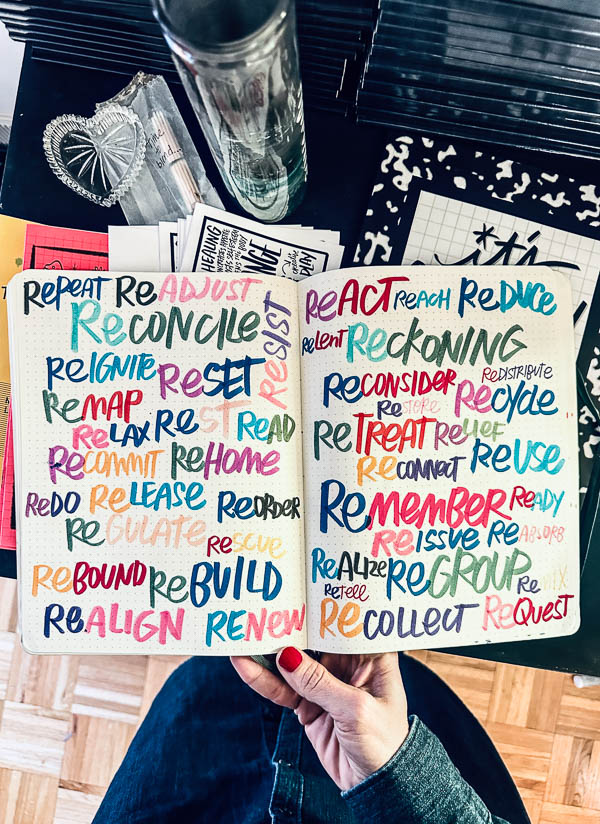 REPEAT READJUST
RECONCILE
RESIST
REIGNITE RESET
REMAP REST
RELAX READ
RECOMMIT REHOME
REDO RELEASE REORDER
REGULATE RESCUE
REBOUND REBUILD
REALIGN RENEW
REACT REACH REDUCE
RELENT RECKONING
RECONSIDER REDISTRIBUTE
RESTORE RECYCLE
RETREAT RELIEF
RECONNECT REUSE
REMEMBER READY
REISSUE REABSORB
REALIZE REGROUP REMIX
RETELL
RECOLLECT REQUEST
HEALING